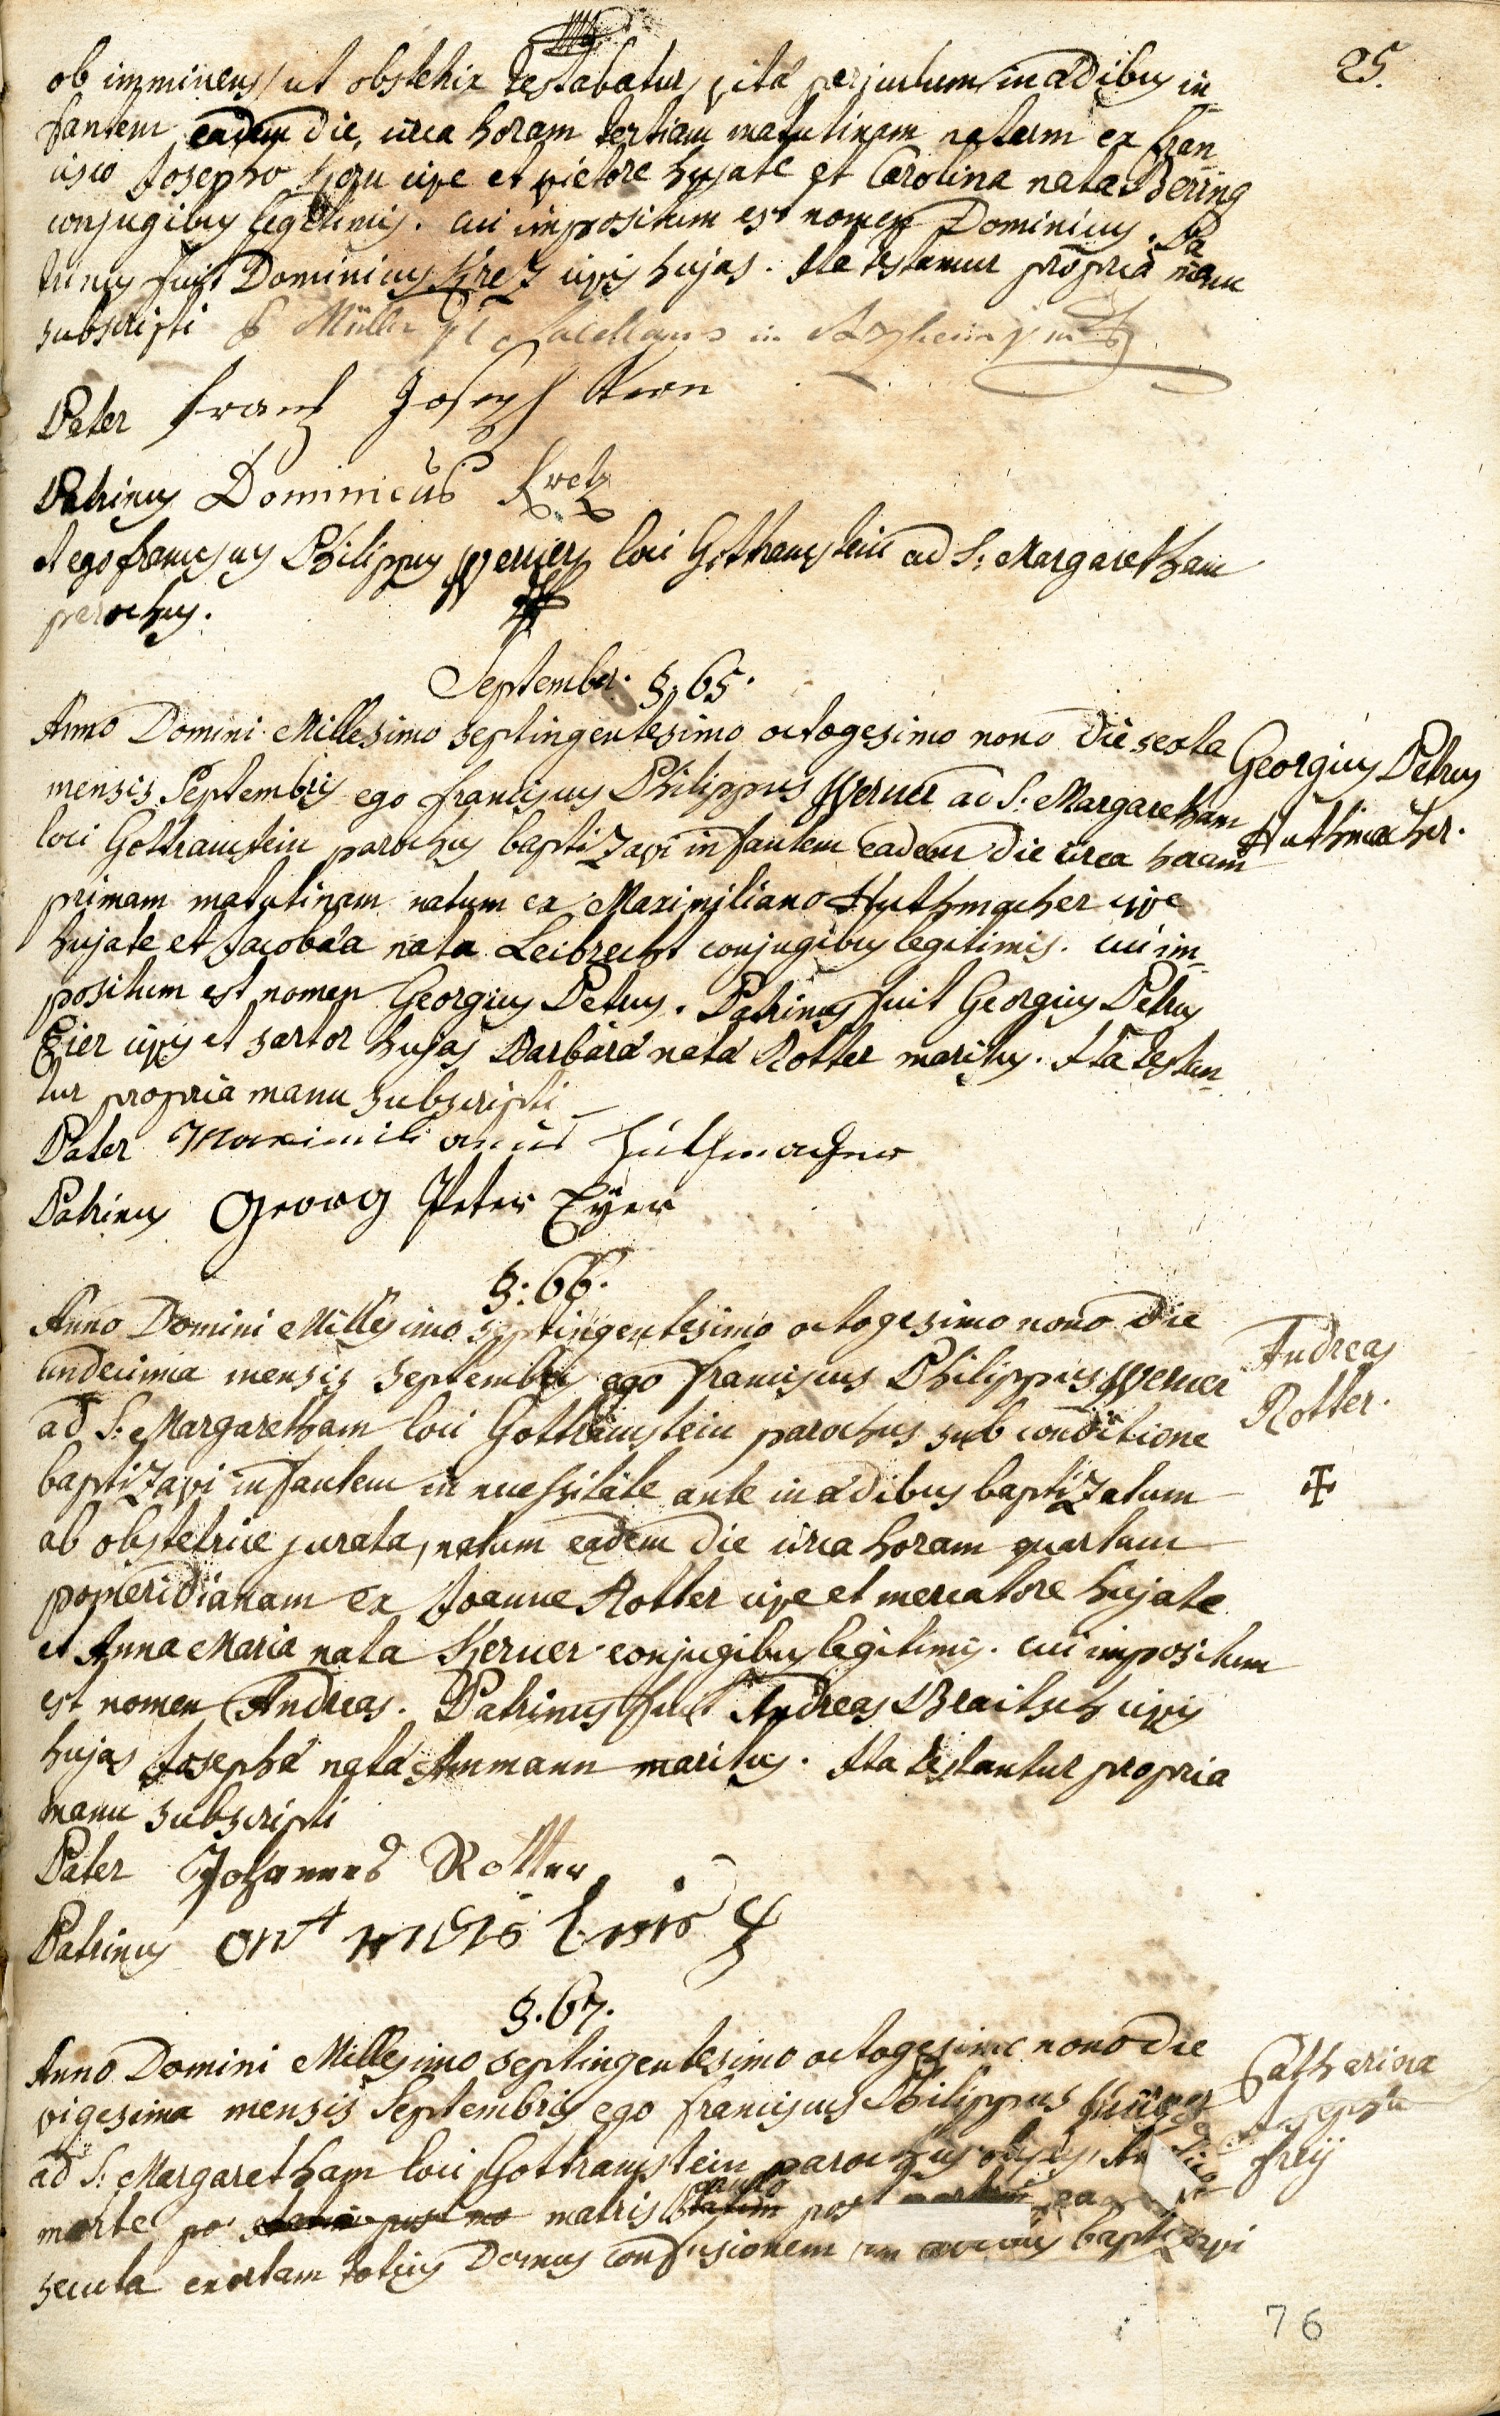 25.
ob imminens /ut obstetrix testabatur/ vitæ periculum in ædibus in-
fantem eadem die, circa horam tertiam matutinam natum ex Fran-
cisco Josepho cive et vietore hujate et Carolina nata Dering
conjugibus legitimis. cui impositum est nomen Dominicus. Pa-
trinus fuit Dominicus Krez civis hujas. Ita testamur propria manu
subscripti Müller Sacellanus in
Pater Frantz Joseph Kern
Patrinus Dominicus Kretz
et ego Franciscus Philippus Werner loci Gottramstein ad S: Margaretham
parochus.
September. §. 65.
Anno Domini Millesimo septingentesimo octogesimo nono die sexta
mensis Septembris ego Franciscus Philippus Werner ad S: Margaretham
loci Gottramstein parochus baptizavi infantem eadem die circa horam
primam matutinam natum ex Maximiliano Huthmacher cive
hujate et Jacobæa nata Leibrecht conjugibus legitimis. cui im-
positum est nomen Georgius Petrus. Patrinus fuit Georgius Petrus
Eier civis et sartor hujas Barbaræ natæ Rotter maritus. Ita testan-
tur propria manu subscripti
Georgius Petrus
Huthmacher.
Pater Maximilianus Huthmacher
Patrinus Georg Peter Eÿer
§. 66.
Anno Domini Millesimo septingentesimo octogesimo nono die
undecima mensis Septembris ego Franciscus Philippus Werner
ad S: Margaretham loci Gottramstein parochus sub conditione
baptizavi infantem in necessitate ante in ædibus baptizatum
ab obstetrice jurata, natum eadem die circa horam quartam
pomeridianam ex Joanne Rotter cive et mercatore hujate
et Anna Maria nata Kerner conjugibus legitimis. cui impositum
est nomen Andreas. Patrinus fuit Andreas Braitsch civis
hujas Josephæ natæ Ammann maritus. Ita testantur propria
manu subscripti
Andreas
Rotter.
Pater Johannes Rotter
Patrinus
§. 67.
Anno Domini Millesimo septingentesimo octogesimo nono die
vigesima mensis Septembris ego Franciscus Philippus
ad S: Margaretham loci Gottramstein parochus
morte matris
secuta exortam totius Domus confusionem in baptizavi
Catharina
Josepha
Freÿ
76